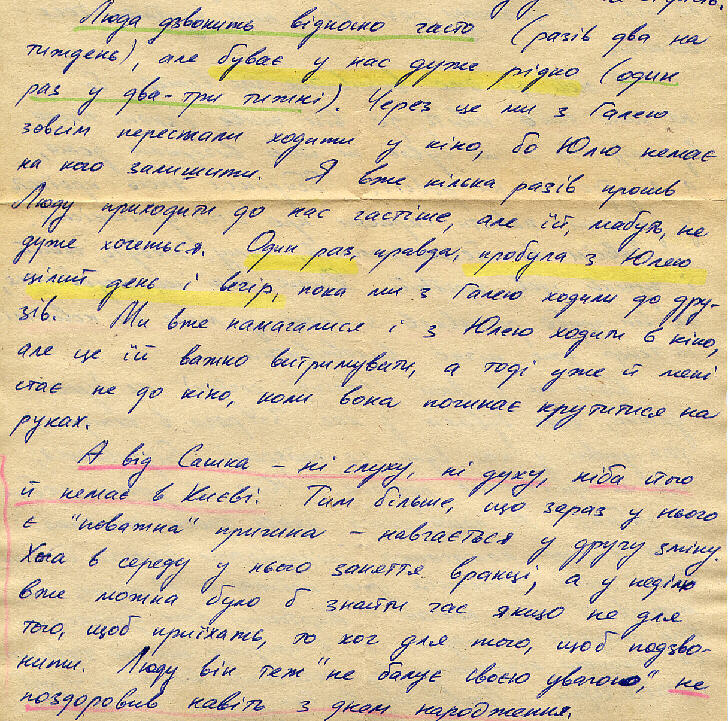 Люда дзвонить відносно часто (разів два на
тиждень), але буває у нас дуже рідко (один
раз у два-три тижні). Через це ми з Галею
зовсім перестали ходити у кіно, бо Юлю немає
на кого залишити. Я вже кілька разів просив
Люду приходити до нас частіше, але їй, мабуть, не
дуже хочеться. Один раз, правда, пробула з Юлею
цілий день і вечір, пока ми з Галею ходили до дру-
зів. Ми вже намагалися і з Юлею ходити в кіно,
але це їй важко витримувати, а тоді уже й мені
стає не до кіно, коли вона починає крутитися на
руках.
А від Сашка – ні слуху, ні духу, ніба його
й немає в Києві. Тим більше, що зараз у нього
є "поважна" причина – навчається у другу зміну.
Хоча в середу у нього заняття вранці, а у неділю
вже можна було б знайти час якщо не для
того, щоб приїхать, то хоч для того, щоб подзво-
нити. Люду він теж "не балує своєю увагою", не
поздоровив навіть з днем народження.